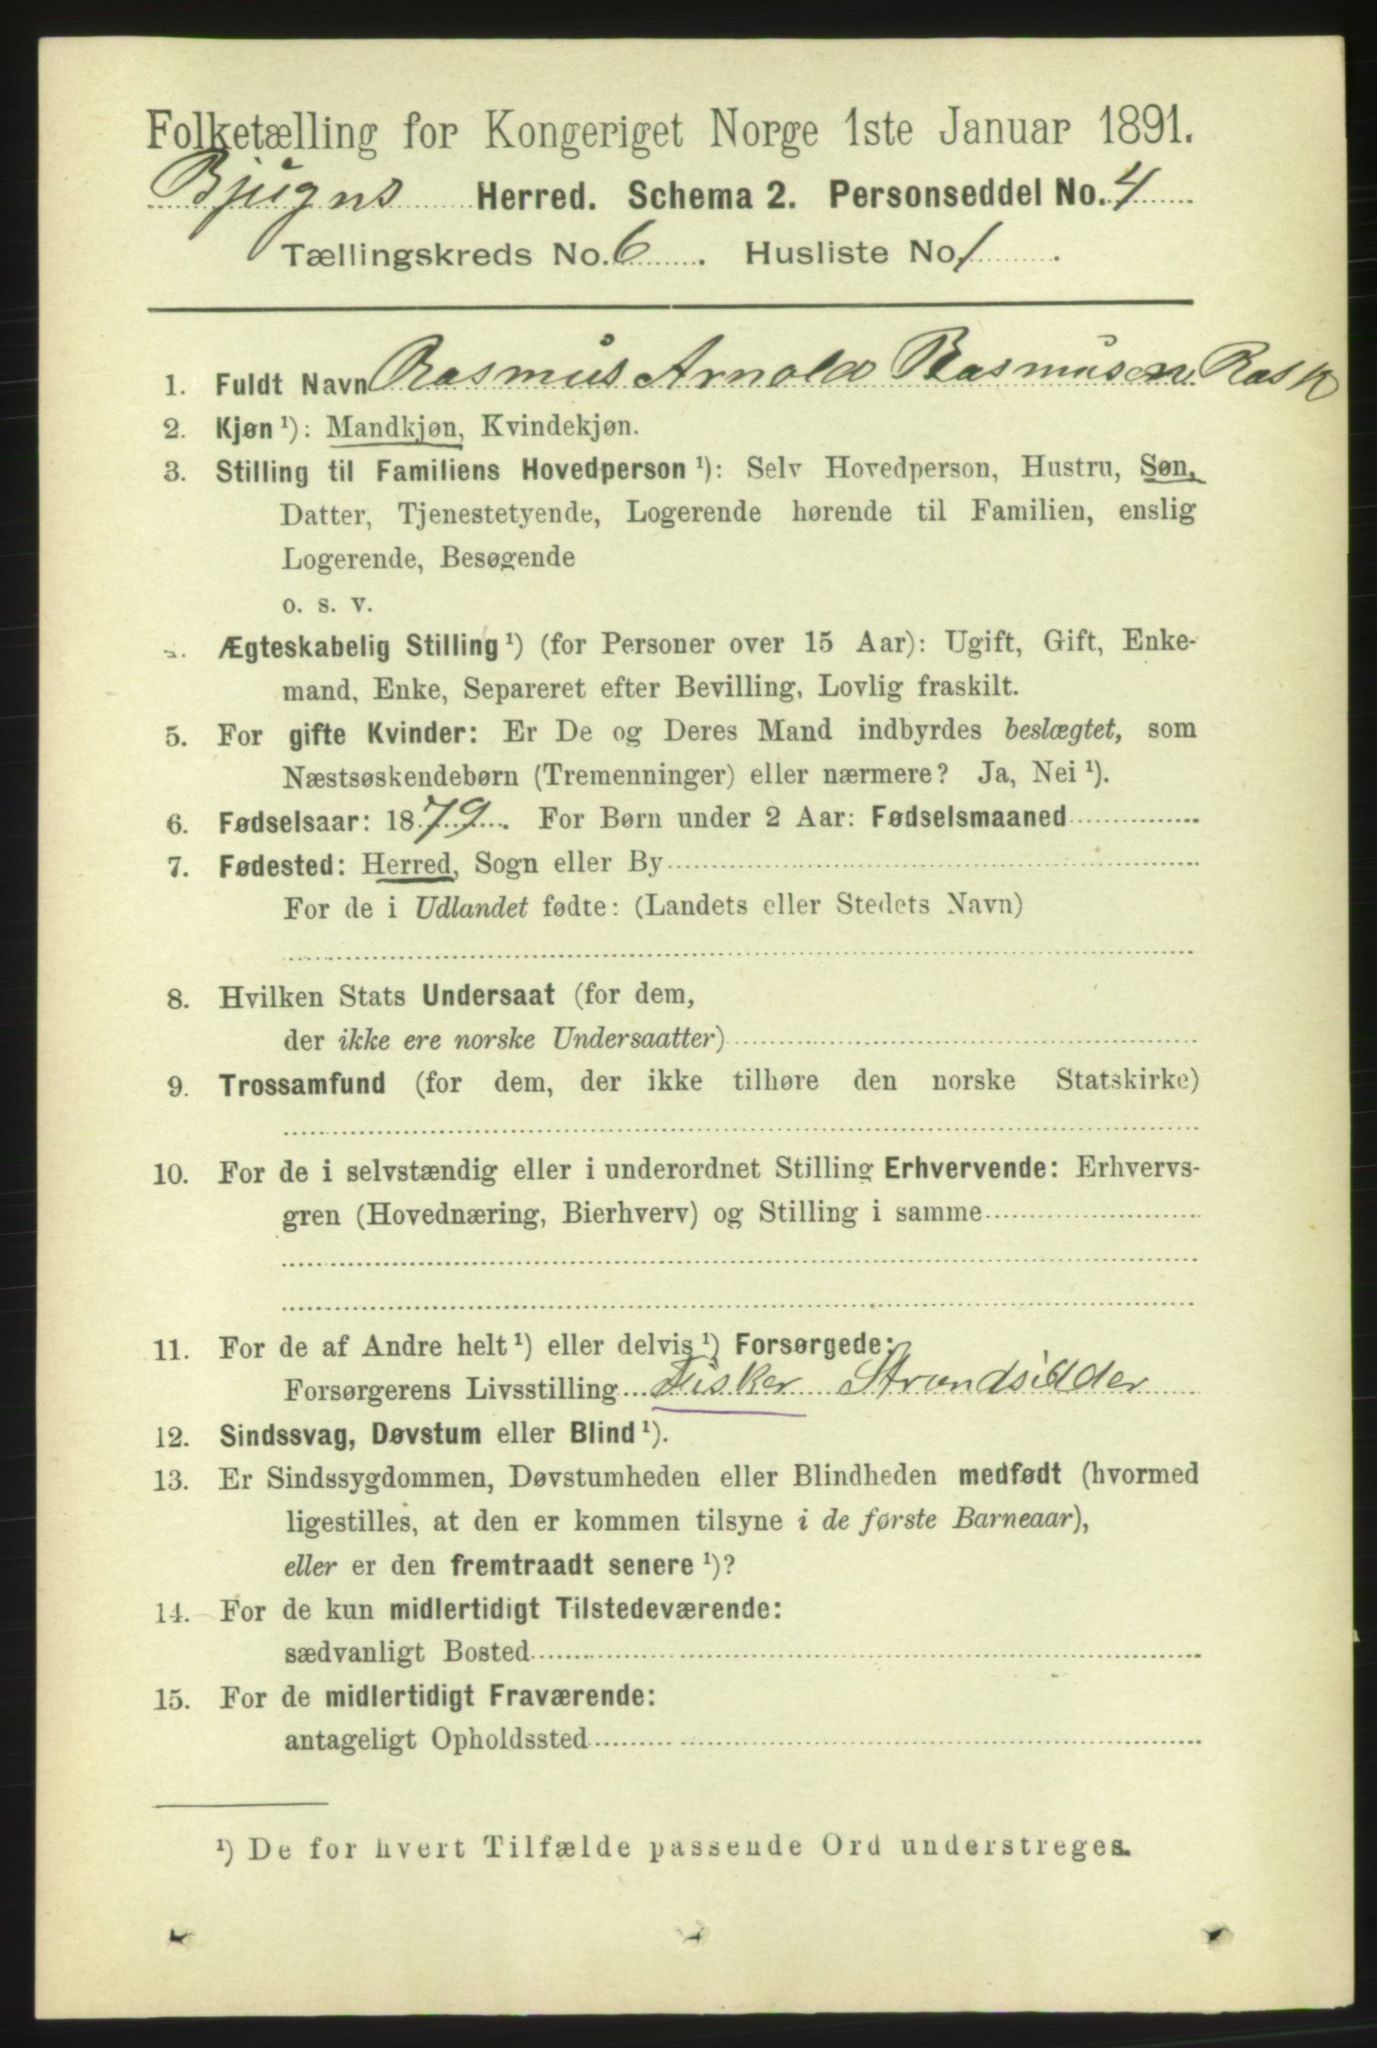 Folketælling for Kongeriget Norge 1ste Januar 1891.
Bjugns Herred. Schema 2. Personseddel No. 4
Tællingskreds No. 6. Husliste No 1.
1. Fuldt Navn Rasmus Arnold Rasmusen Rask
2. Kjøn ¹): Mandkjøn, Kvindekjøn.
3. Stilling til Familiens Hovedperson ¹): Selv Hovedperson, Hustru, Søn,
Datter, Tjenestetyende, Logerende hørende til Familien, enslig
Logerende, Besøgende
o. s. v.
4. Ægteskabelig Stilling ¹) (for Personer over 15 Aar): Ugift, Gift, Enke-
mand, Enke, Separeret efter Bevilling, Lovlig fraskilt.
5. For gifte Kvinder: Er De og Deres Mand indbyrdes beslægtet, som
Næstsøskendebørn (Tremenninger) eller nærmere? Ja, Nei ¹).
6. Fødselsaar: 1879. For Børn under 2 Aar: Fødselsmaaned
7. Fødested: Herred, Sogn eller By
For de i Udlandet fødte: (Landets eller Stedets Navn)
8. Hvilken Stats Undersaat (for dem,
der ikke ere norske Undersaatter)
9. Trossamfund (for dem, der ikke tilhøre den norske Statskirke)
10. For de i selvstændig eller i underordnet Stilling Erhvervende: Erhvervs-
gren (Hovednæring, Bierhverv) og Stilling i samme
11. For de af Andre helt ¹) eller delvis ¹) Forsørgede:
Forsørgerens Livsstilling Fisker Strandsidder
12. Sindssvag, Døvstum eller Blind ¹).
13. Er Sindssygdommen, Døvstumheden eller Blindheden medfødt (hvormed
ligestilles, at den er kommen tilsyne i de første Barneaar),
eller er den fremtraadt senere ¹)?
14. For de kun midlertidigt Tilstedeværende:
sædvanligt Bosted
15. For de midlertidigt Fraværende:
antageligt Opholdssted
¹) De for hvert Tilfælde passende Ord understreges.